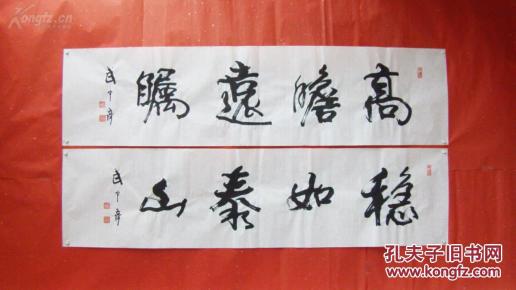 高瞻遠矚
武中奇
稳如泰山
武中奇
Kongfz.cn
孔夫子旧书网
www.kongfz.com